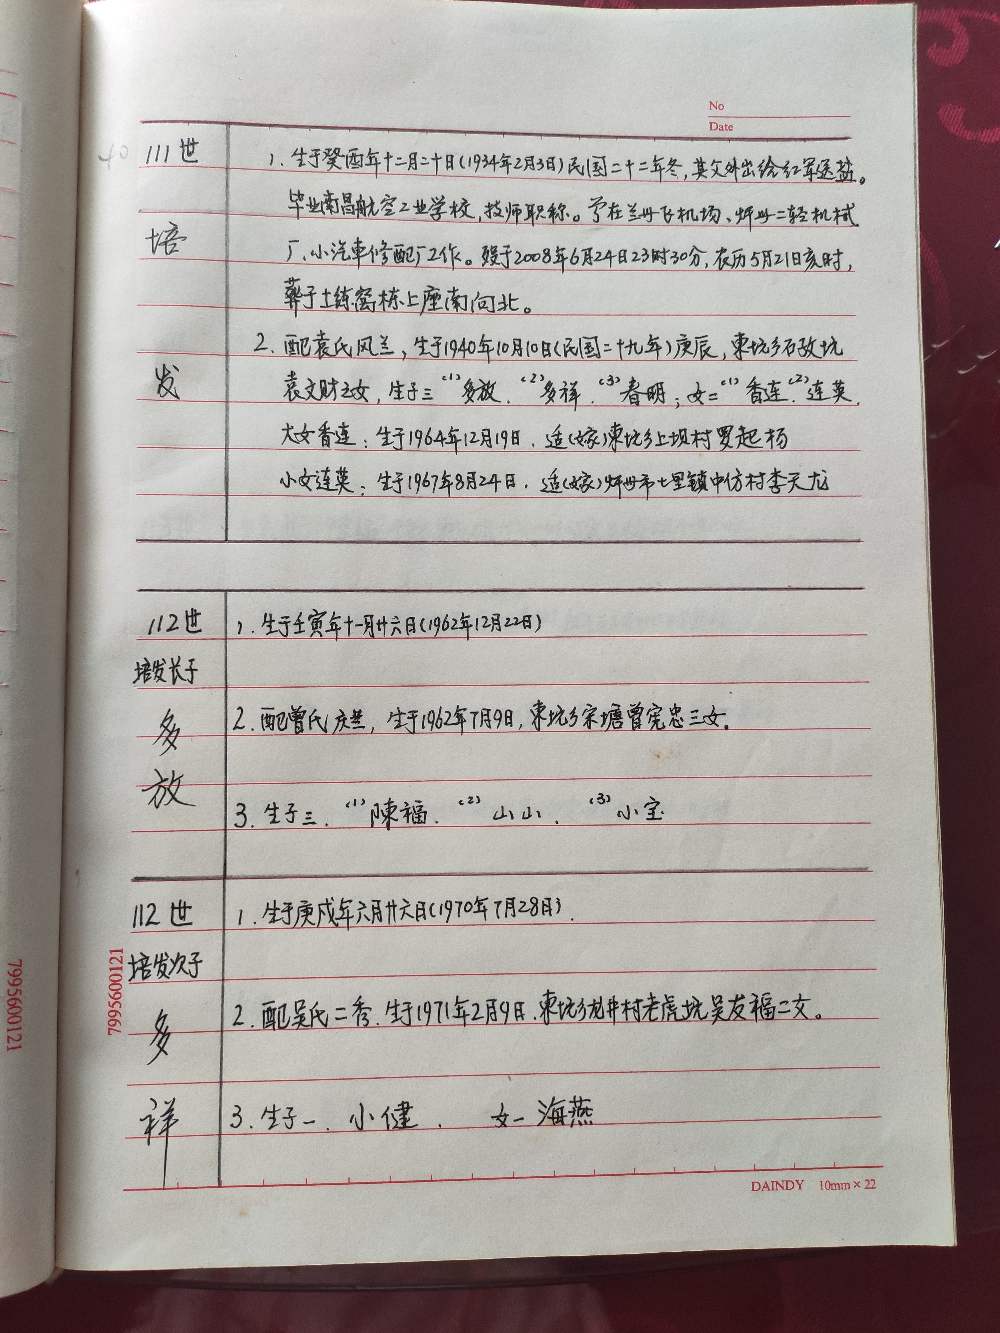 No
Date
40
111世
培
发
1. 生于癸酉年十二月二十日(1934年2月3日)民国二十二年冬,其父外出给红军送盐。
毕业南昌航空工业学校,技师职称。曾在兰州飞机场、赣州二轻机械
厂、小汽車修配厂工作。殁于2008年6月24日23时30分,农历5月21日亥时,
葬于土练窑栋上座南向北。
2. 配袁氏风兰,生于1940年10月10日(民国二十九年)庚辰,東坑乡石
袁文财之女,生子三(1)多放.(2)多祥.(3)春明;女二(1)香连.(2)连英.
大女香连:生于1964年12月19日.适(嫁)東坑乡上坝村罗起杨
小女连英:生于1967年8月24日.适(嫁)赣州市七里镇中仿村李天龙
112世
培发长子
多
放
1. 生于壬寅年十一月廿六日(1962年12月22日)
2. 配曾氏庆兰,生于1962年7月9日,東坑乡宋塘曾宪忠三女.
3. 生子三.(1)陳福.(2)山山.(3)小宝
112世
培发次子
多
祥
1. 生于庚戍年六月廿六日(1970年7月28日).
2. 配吴氏二秀.生于1971年2月9日.東坑乡龙井村老虎坑吴友福二女。
3. 生子一.小健.女一海燕
7995600121
7995600121
DAINDY 10mm×22